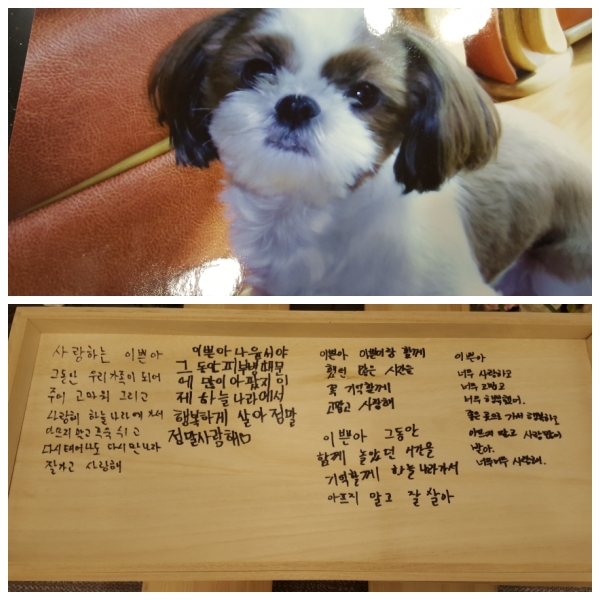 사랑하는 이쁜아
그동안 우리가족이 되어
주어 고마워 그리고
사랑해 하늘나라에 가서
아프지말고 푹 쉬고
다시태어나도 다시 만나자
잘가고 사랑해
이쁜아 나윤서야
그 동안 피부병때문
에 많이아팠지이
제 하늘나라에서
행복하게 살아 정말
정말사랑해♡
이쁜아 이쁜이랑 함께
했던 많은 시간들
꼭 기억할게
고맙고 사랑해
이쁜아 그동안
함께 놀았던 시간을
기억할게 하늘나라가서
아프지 말고 잘 살아
이쁜아
너무 사랑하고
너무 고맙고
너무 행복했어.
좋은 곳으로 가서 행복하고
아프지 말고 사랑받아
너무너무 사랑해.